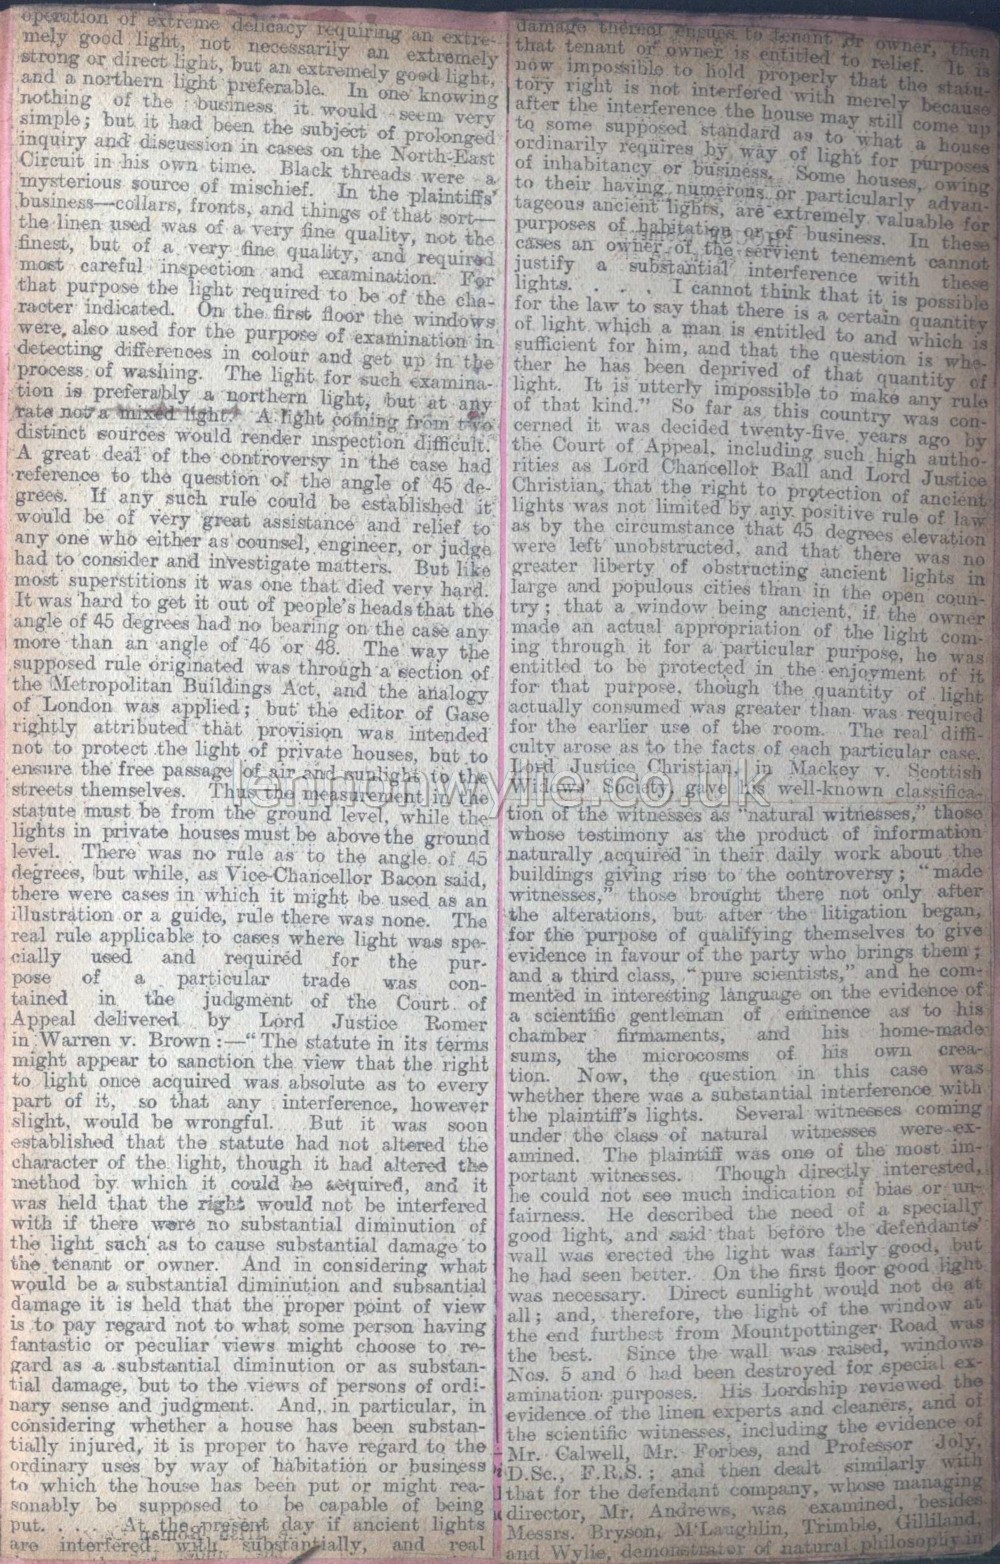 operation of extreme delicacy requiring an extre-
mely good light, not necessarily an extremely
strong or direct light, but an extremely good light,
and a northern light preferable. In one knowing
nothing of the business it would seem very
simple; but it had been the subject of prolonged
inquiry and discussion in cases on the North-East
Circuit in his own time. Black threads were a
mysterious source of mischief. In the plaintiffs'
business—collars, fronts, and things of that sort—
the linen used was of a very fine quality, not the
finest, but of a very fine quality, and required
most careful inspection and examination. For
that purpose the light required to be of the cha-
racter indicated. On the first floor the windows
were also used for the purpose of examination in
detecting differences in colour and get up in the
process of washing. The light for such examina-
tion is preferably a northern light, but at any
rate not a mixed light. A light coming from two
distinct sources would render inspection difficult.
A great deal of the controversy in the case had
reference to the question of the angle of 45 de-
grees. If any such rule could be established it
would be of very great assistance and relief to
any one who either as counsel, engineer, or judge
had to consider and investigate matters. But like
most superstitions it was one that died very hard.
It was hard to get it out of people's heads that the
angle of 45 degrees had no bearing on the case any
more than an angle of 46 or 48. The way the
supposed rule originated was through a section of
the Metropolitan Buildings Act, and the analogy
of London was applied; but the editor of Gase
rightly attributed that provision was intended
not to protect the light of private houses, but to
ensure the free passage of air and sunlight to the
streets themselves. Thus the measurement in the
statute must be from the ground level, while the
lights in private houses must be above the ground
level. There was no rule as to the angle of 45
degrees, but while, as Vice-Chancellor Bacon said,
there were cases in which it might be used as an
illustration or a guide, rule there was none. The
real rule applicable to cases where light was spe-
cially used and required for the pur-
pose of a particular trade was con-
tained in the judgment of the Court of
Appeal delivered by Lord Justice Romer
in Warren v. Brown:—"The statute in its terms
might appear to sanction the view that the right
to light once acquired was absolute as to every
part of it, so that any interference, however
slight, would be wrongful. But it was soon
established that the statute had not altered the
character of the light, though it had altered the
method by which it could be acquired, and it
was held that the right would not be interfered
with if there were no substantial diminution of
the light such as to cause substantial damage to
the tenant or owner. And in considering what
would be a substantial diminution and subsantial
damage it is held that the proper point of view
is to pay regard not to what some person having
fantastic or peculiar views might choose to re-
gard as a substantial diminution or as substan-
tial damage, but to the views of persons of ordi-
nary sense and judgment. And, in particular, in
considering whether a house has been substan-
tially injured, it is proper to have regard to the
ordinary uses by way of habitation or business
to which the house has been put or might rea-
sonably be supposed to be capable of being
put. . . . At the present day if ancient lights
are interfered with substantially, and real
damage thereof ensues to tenant or owner, then
that tenant or owner is entitled to relief. It is
now impossible to hold properly that the statu-
tory right is not interfered with merely because
after the interference the house may still come up
to some supposed standard as to what a house
ordinarily requires by way of light for purposes
of inhabitancy or business. Some houses, owing
to their having numerous or particularly advan-
tageous ancient lights, are extremely valuable for
purposes of habitation or of business. In these
cases an owner of the servient tenement cannot
justify a substantial interference with these
lights. . . . I cannot think that it is possible
for the law to say that there is a certain quantity
of light which a man is entitled to and which is
sufficient for him, and that the question is whe-
ther he has been deprived of that quantity of
light. It is utterly impossible to make any rule
of that kind." So far as this country was con-
cerned it was decided twenty-five years ago by
the Court of Appeal, including such high autho-
rities as Lord Chancellor Ball and Lord Justice
Christian, that the right to protection of ancient
lights was not limited by any positive rule of law
as by the circumstance that 45 degrees elevation
were left unobstructed, and that there was no
greater liberty of obstructing ancient lights in
large and populous cities than in the open coun-
try; that a window being ancient, if the owner
made an actual appropriation of the light com-
ing through it for a particular purpose, he was
entitled to be protected in the enjoyment of it
for that purpose, though the quantity of light
actually consumed was greater than was required
for the earlier use of the room. The real diffi-
culty arose as to the facts of each particular case.
Lord Justice Christian, in Mackey v. Scottish
Widows' Society, gave his well-known classifica-
tion of the witnesses as "natural witnesses," those
whose testimony as the product of information
naturally acquired in their daily work about the
buildings giving rise to the controversy; "made
witnesses," those brought there not only after
the alterations, but after the litigation began,
for the purpose of qualifying themselves to give
evidence in favour of the party who brings them;
and a third class, "pure scientists," and he com-
mented in interesting language on the evidence of
a scientific gentleman of eminence as to his
chamber firmaments, and his home-made
sums, the microcosms of his own crea-
tion. Now, the question in this case was
whether there was a substantial interference with
the plaintiff's lights. Several witnesses coming
under the class of natural witnesses were ex-
amined. The plaintiff was one of the most im-
portant witnesses. Though directly interested,
he could not see much indication of bias or un-
fairness. He described the need of a specially
good light, and said that before the defendants'
wall was erected the light was fairly good, but
he had seen better. On the first floor good light
was necessary. Direct sunlight would not do at
all; and, therefore, the light of the window at
the end furthest from Mountpottinger Road was
the best. Since the wall was raised, windows
Nos. 5 and 6 had been destroyed for special ex-
amination purposes. His Lordship reviewed the
evidence of the linen experts and cleaners, and of
the scientific witnesses, including the evidence of
Mr. Calwell, Mr. Forbes, and Professor Joly,
D.Sc., F.R.S.; and then dealt similarly with
that for the defendant company, whose managing
director, Mr. Andrews, was examined, besides
Messrs. Bryson, M'Laughlin, Trimble, Gilliland,
and Wylie, demonstrator of natural philosophy in
lennonwylie.co.uk